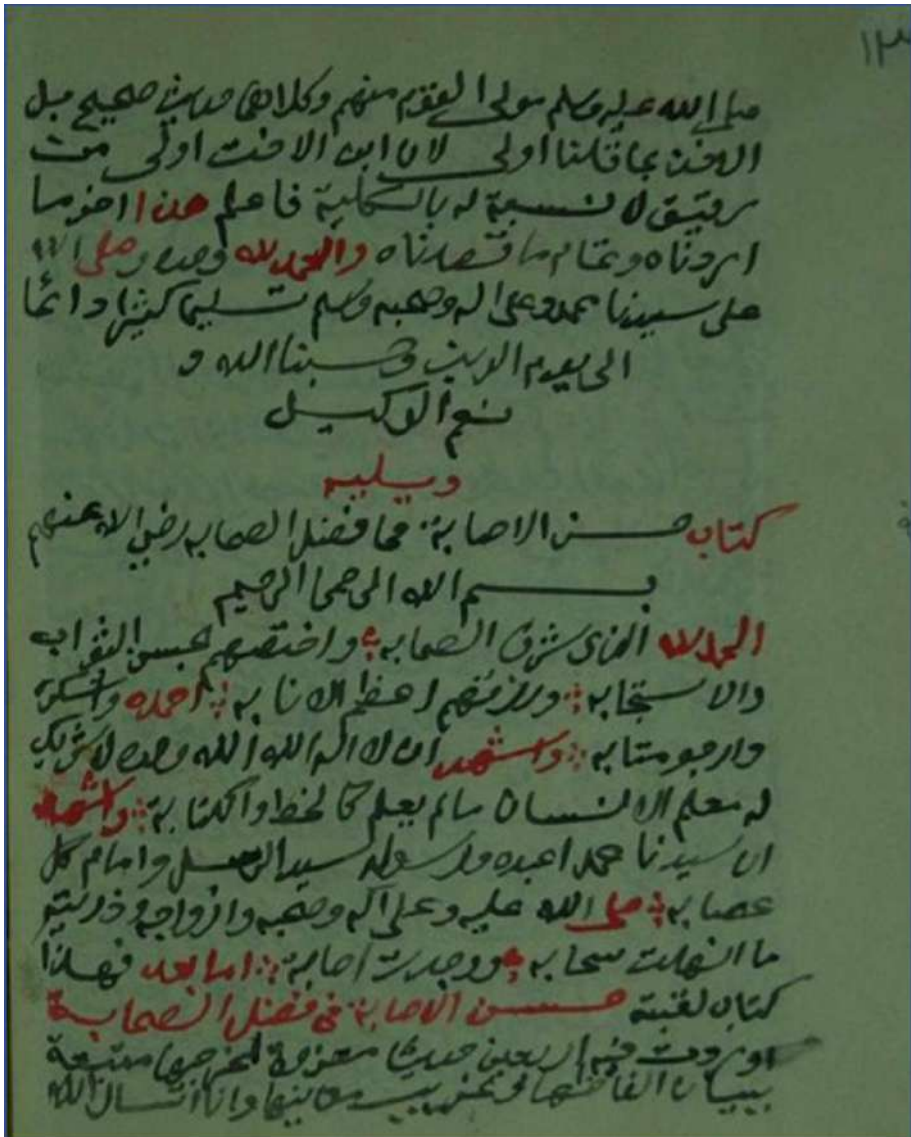 ١٢
صلى الله عليه وسلم مولى القوم منهم وكلاهما حديث صحيح قبل
الاخذ بما قلنا اولى لان ابن الاخت اولى من
رقيق لا نسبة له بالكلية فاعلم هذا اخر ما
اردناه وتمام ما قصدناه والحمد لله وحده وصلى الله
على سيدنا محمد وعلى اله وصحبه وسلم تسليما كثيرا دائما
الى يوم الدين وحسبنا الله و
نعم الوكيل
ويليه
كتاب حسن الاصابة في فضل الصحابه رضي الله عنهم
بسم الله الرحمن الرحيم
الحمد لله الذي شرف الصحابه واختصهم بحسن الثواب
والاستجابه ورزقهم اعظم الانابه احمده واشكره
وارجو متابه واشهد ان لا اله الا الله وحده لا شريك
له معلم الانسان مالم يعلم كالخط والكتابة واشهد
ان سيدنا محمدا عبده ورسوله سيد الرسل وامام كل
عصابه صلى الله عليه وعلى اله وصحبه وازواجه وذريته
ما انهلت سحابه ووجدت اصابة اما بعد فهذا
كتاب لقبته حسن الاصابة في فضل الصحابة
اوردت فيه اربعين حديثا معزوة لمخرجيها متبعة
ببيان الفاظها وغريب معانيها وانا اسال الله